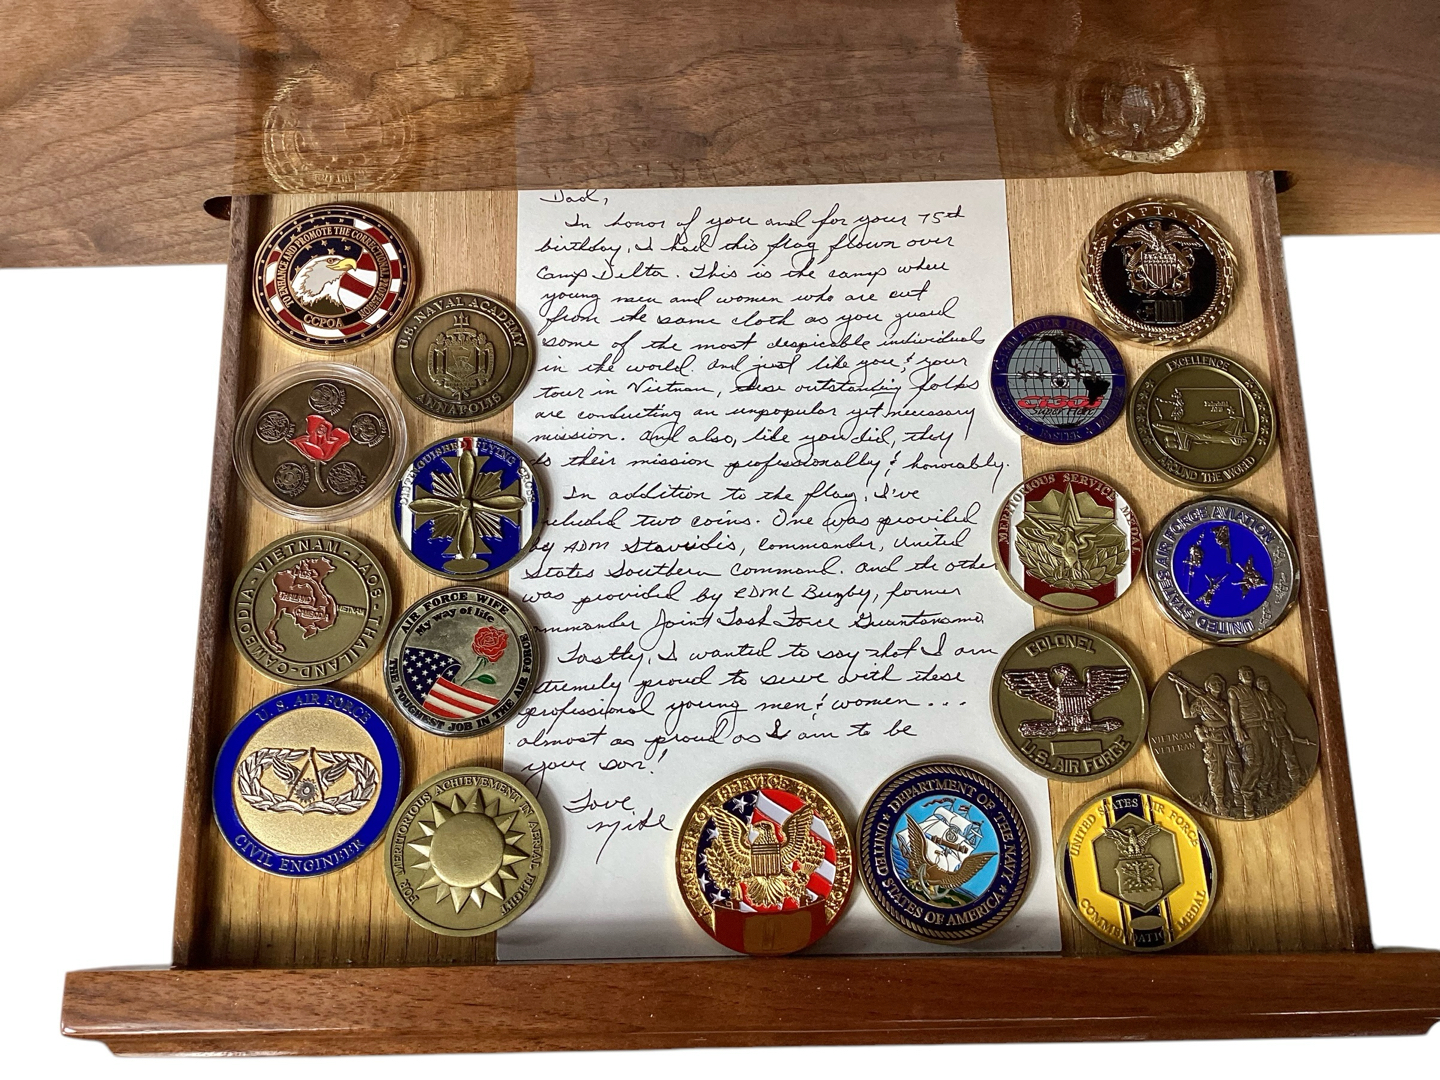 Dad,
In honor of you and for your 75th
birthday, I had this flag flown over
Camp Delta. This is the camp where
young men and women who are cut
from the same cloth as you guard
some of the most despicable individuals
in the world. And just like you & your
tour in Vietnam, these outstanding folks
are conducting an unpopular yet necessary
mission. And also, like you did, they
do their mission professionally & honorably.
In addition to the flag, I've
included two coins. One was provided
by ADM Stavridis, Commander, United
States Southern Command. And the other
was provided by RDML Buzby, former
Commander Joint Task Force Guantanamo
Lastly, I wanted to say that I am
extremely proud to serve with these
professional young men & women...
almost as proud as I am to be
your son!
Love
Mike
TO ENHANCE AND PROMOTE THE CORRECTIONAL PROFESSION
CCPOA
U.S. NAVAL ACADEMY
ANNAPOLIS
DISTINGUISHED FLYING CROSS
CAMBODIA - VIETNAM - LAOS - THAILAND
THAILAND
VIETNAM
AIR FORCE WIFE
My way of life
THE TOUGHEST JOB IN THE AIR FORCE
U.S. AIR FORCE
CIVIL ENGINEER
FOR MERITORIOUS ACHIEVEMENT IN AERIAL FLIGHT
A GRATEFUL NATION
DEPARTMENT OF THE NAVY
UNITED STATES OF AMERICA
CAPTAIN
EXCELLENCE
AROUND THE WORLD
MERITORIOUS SERVICE MEDAL
UNITED STATES AIR FORCE AVIATION
COLONEL
U.S. AIR FORCE
VIETNAM
VETERAN
UNITED STATES AIR FORCE
COMMENDATION MEDAL